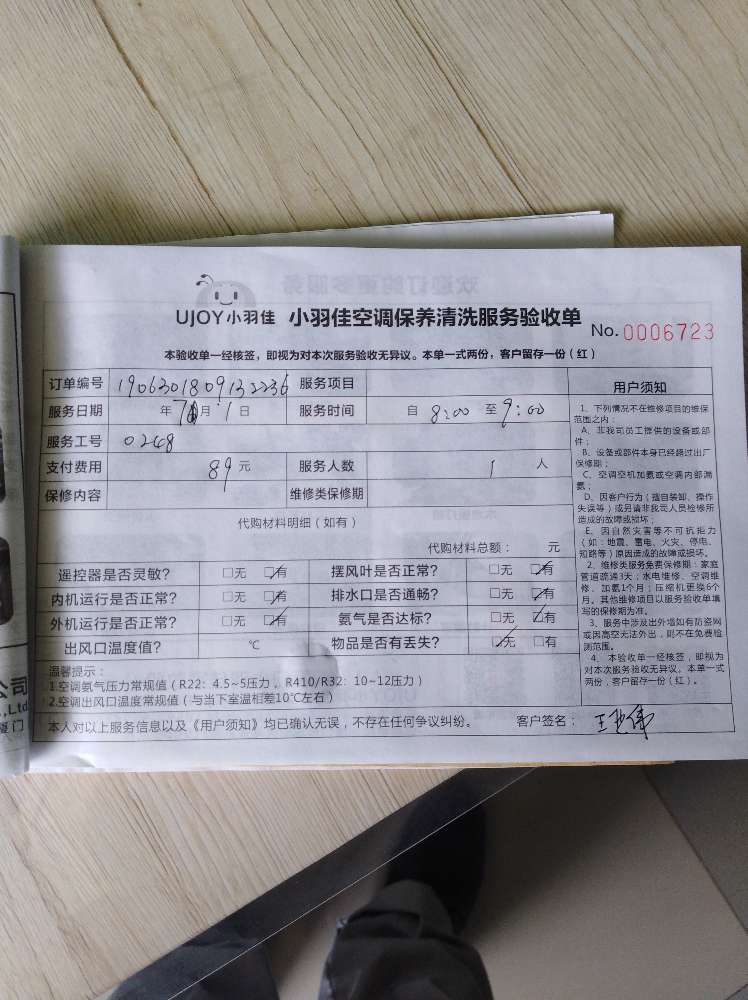 UJOY小羽佳 小羽佳空调保养清洗服务验收单 No. 0006723
本验收单一经核签，即视为对本次服务验收无异议。本单一式两份，客户留存一份（红）
订单编号 1906301809132236 服务项目
服务日期 年 7月 1 日 服务时间 自 8:00 至 9:00
服务工号 0248
支付费用 89元 服务人数 1 人
保修内容 维修类保修期
代购材料明细（如有）
代购材料总额： 元
遥控器是否灵敏？ □无 □有 摆风叶是否正常？ □无 □有
内机运行是否正常？ □无 □有 排水口是否通畅？ □无 □有
外机运行是否正常？ □无 □有 氨气是否达标？ □无 □有
出风口温度值？ ℃ 物品是否有丢失？ □无 □有
温馨提示：
1.空调氨气压力常规值（R22：4.5~5压力，R410/R32：10~12压力）
2.空调出风口温度常规值（与当下室温相差10℃左右）
本人对以上服务信息以及《用户须知》均已确认无误，不存在任何争议纠纷。 客户签名：
用户须知
1、下列情况不在维修项目的维保
范围之内：
A、非我司员工提供的设备或部
件；
B、设备或部件本身已经超过出厂
保修期；
C、空调空机加氨或空调内部漏
氨；
D、因客户行为（擅自装卸、操作
失误等）或另请非我司人员检修所
造成的故障或损坏；
E、因自然灾害等不可抗拒力
（如：地震、雷电、火灾、停电、
短路等）原因造成的故障或损坏。
2、维修类服务免费保修期：家庭
管道疏通3天；水电维修、空调维
修、加氨1个月；压缩机更换6个
月。其他维修项目以服务验收单填
写的保修期为准。
3、服务中涉及出外墙如有防盗网
或因高空无法外出，则不在免费检
测范围。
4、本验收单一经核签，即视为
对本次服务验收无异议。本单一式
两份，客户留存一份（红）。
公司
,Ltd
厦门